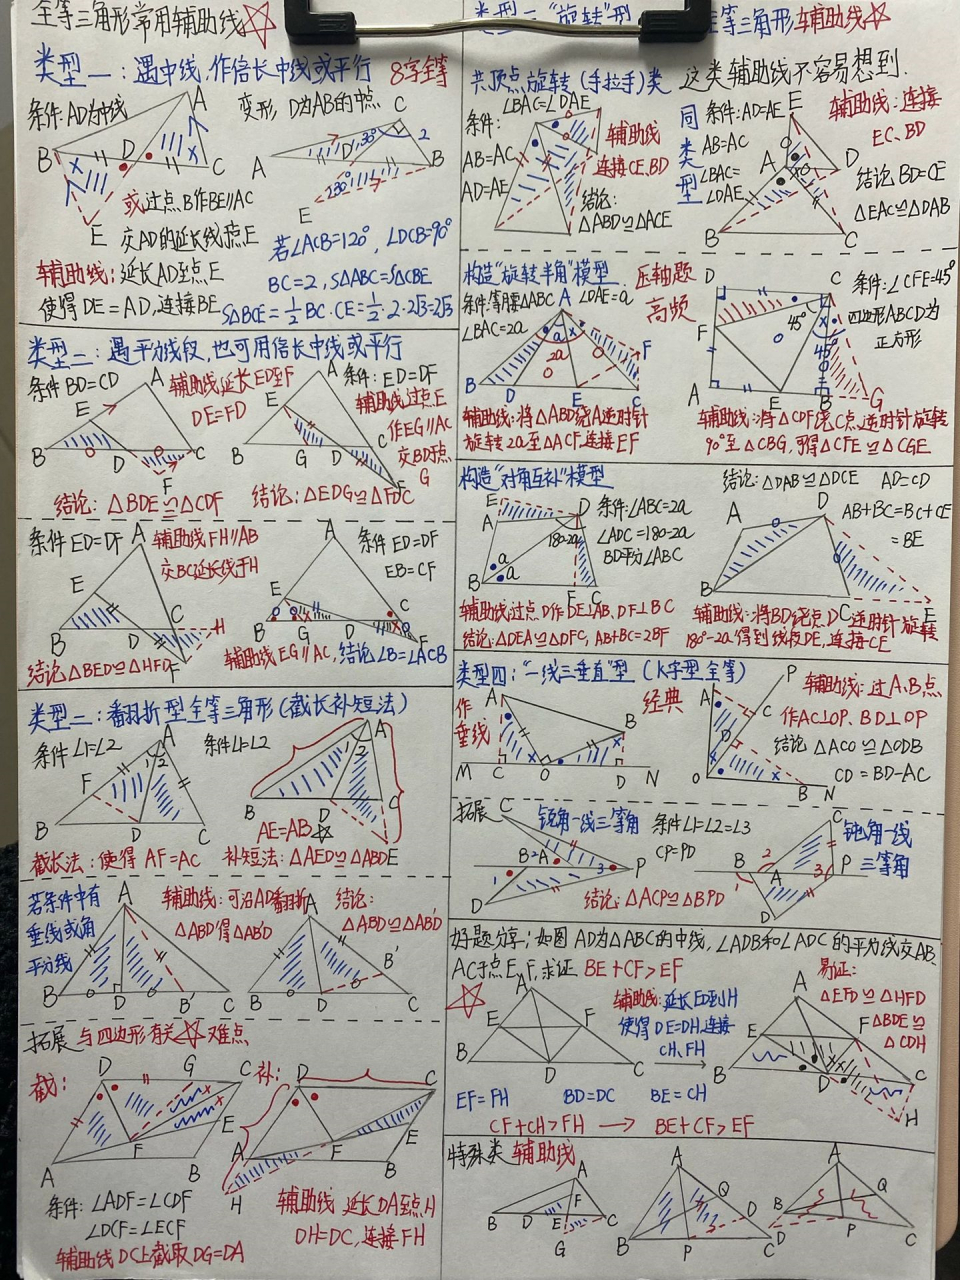 全等三角形常用辅助线
类型一：遇中线，作倍长中线或平行 8字全等
条件AD为中线
A
B
D
C
E
或过点B作BE∥AC
交AD的延长线点E
辅助线：延长AD至点E
使得DE=AD，连接BE
变形 D为AB的中点
C
A
D
30°
2
B
E
若∠ACB=120°，∠DCB=90°
BC=2，S△ABC=S△CBE
S△BCE=½BC·CE=½·2·2√3=2√3
类型二：遇平方线段，也可用倍长中线或平行
条件BD=CD
A
E
B
D
C
F
辅助线延长ED至F
DE=FD
结论：△BDE≌△CDF
条件：ED=DF
A
E
B
G
D
C
F
辅助线过点E
作EG∥AC
交BD于点
G
结论：△EDG≌△FDC
条件ED=DF
A
E
B
D
C
H
F
辅助线FH∥AB
交BC延长线于H
结论△BED≌△HFD
条件ED=DF
EB=CF
A
E
B
G
D
C
F
辅助线EG∥AC，结论∠B=∠ACB
类型二：翻折型全等三角形(截长补短法)
条件∠1=∠2
A
1 2
F
B
D
C
截长法：使得AF=AC
条件∠1=∠2
A
1 2
B
D
C
E
AE=AB
补短法：△AED≌△ABD
若条件中有
垂线或角
平分线
A
B
D
B'
C
辅助线：可沿AD翻折
△ABD得△AB'D
结论：
△ABD≌△AB'D
A
B'
B
D
C
拓展 与四边形有关 难点
截：
D
G
C
E
F
A
B
条件：∠ADF=∠CDF
∠DCF=∠ECF
辅助线DC上截取DG=DA
补：
D
C
A
F
E
B
H
辅助线 延长DA至点H
DH=DC，连接FH
类型三“旋转”型
全等三角形辅助线
共顶点旋转(手拉手)类 这类辅助线不容易想到.
∠BAC=∠DAE
条件：
AB=AC
AD=AE
辅助线
连接CE、BD
结论：
△ABD≌△ACE
同
类
型
条件：AD=AE
AB=AC
∠BAC=
∠DAE
E
A
D
B
C
辅助线：连接
EC、BD
结论BD=CE
△EAC≌△DAB
构造“旋转半角”模型 压轴题
高频
条件：等腰△ABC ∠DAE=a
∠BAC=2a
A
a
2a
F
B
D
E
C
辅助线：将△ABD绕A逆时针
旋转2a至△ACF，连接EF
D
C
F
45°
45°
A
E
B
G
条件：∠CFE=45°
四边形ABCD为
正方形
辅助线：将△CDF绕C点逆时针旋转
90°至△CBG，可得△CFE≌△CGE
构造“对角互补”模型
E
A
D
180-2a
a
a
B
F
C
条件：∠ABC=2a
∠ADC=180-2a
BD平分∠ABC
辅助线过点D作DE⊥AB、DF⊥BC
结论：△DEA≌△DFC，AB+BC=2BF
结论：△DAB≌△DCE AD=CD
AB+BC=BC+CE
=BE
A
D
B
C
E
辅助线：将BD绕点D逆时针旋转
180°-2a，得到线段DE，连接CE
类型四：“一线三垂直”型(K字型全等)
作
垂线
经典
A
B
M
C
O
D
N
P
A
C
D
O
B
N
辅助线：过A、B点
作AC⊥OP、BD⊥OP
结论 △ACO≌△ODB
CD=BD-AC
拓展
C
锐角一线三等角
条件∠1=∠2=∠3
CP=PD
B
2
A
1
3
P
D
结论：△ACP≌△BPD
C
B
2
A
1
3
P
D
钝角一线
三等角
好题分享：如图AD为△ABC的中线，∠ADB和∠ADC的平分线交AB、
AC于点E、F，求证BE+CF>EF
A
E
F
B
D
C
辅助线：延长ED到H
使得DE=DH，连接
CH、FH
易证：
△EFD≌△HFD
△BDE≌
△CDH
A
E
F
B
D
C
H
EF=FH BD=DC BE=CH
CF+CH>FH → BE+CF>EF
特殊类 辅助线
A
F
B
D
E
C
G
A
Q
D
B
P
C
A
Q
B
D
P
C